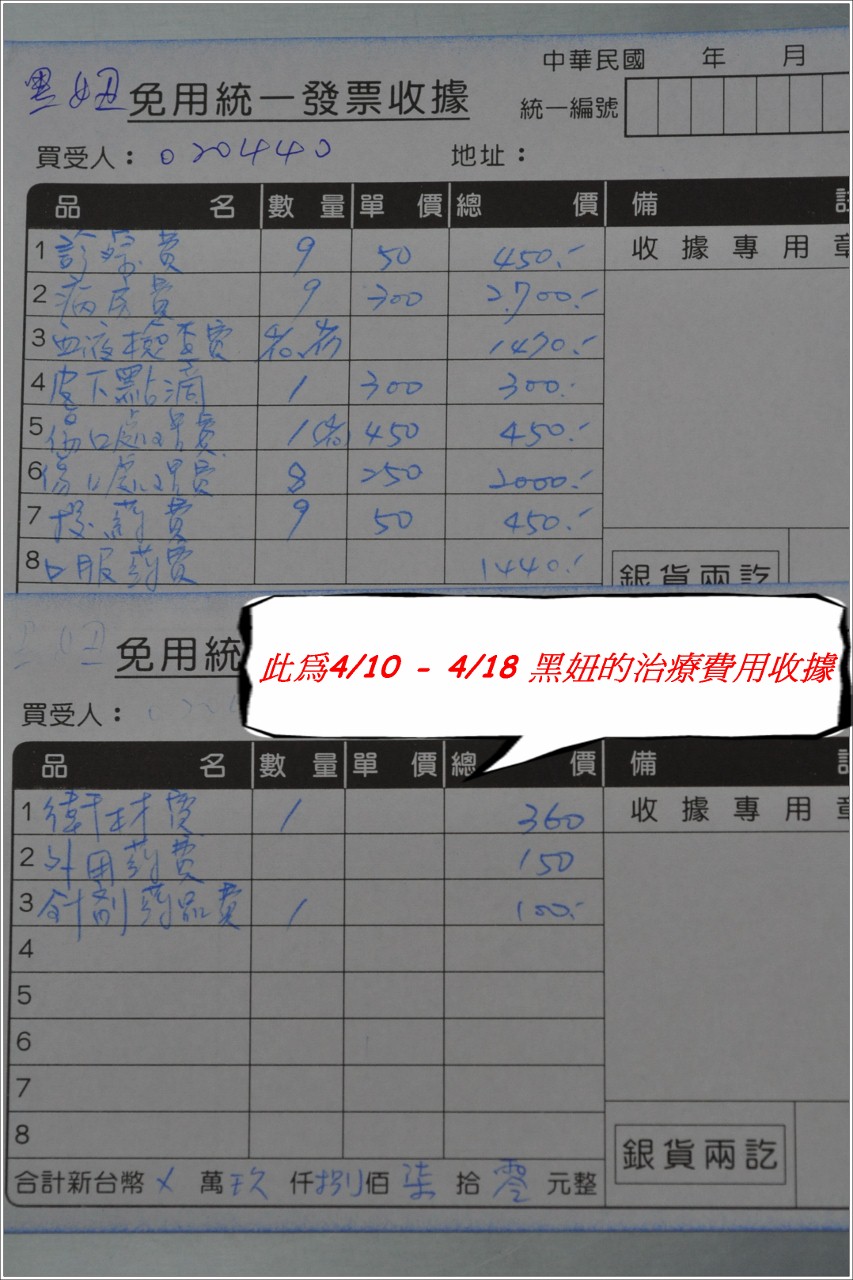 中華民國 年 月
黑妞 免用統一發票收據
統一編號
買受人：020440 地址：
品名 數量 單價 總價 備註
1 診療費 9 50 450.-
收據專用章
2 病房費 9 300 2,700.-
3 血液檢查費 1470.-
4 皮下點滴 1 300 300.-
5 傷口處理費 1 450 450.-
6 傷口處理費 8 250 2000.-
7 投葯費 9 50 450.-
8 口服葯費 1440.-
銀貨兩訖
黑妞 免用統
此為4/10 - 4/18 黑妞的治療費用收據
買受人：
品名 數量 單價 總價 備註
1 衛材費 1 360
收據專用章
2 外用葯費 150
3 針劑葯品費 1 100.-
4
5
6
7
8
銀貨兩訖
合計新台幣 x 萬 玖 仟 捌 佰 柒 拾 零 元整